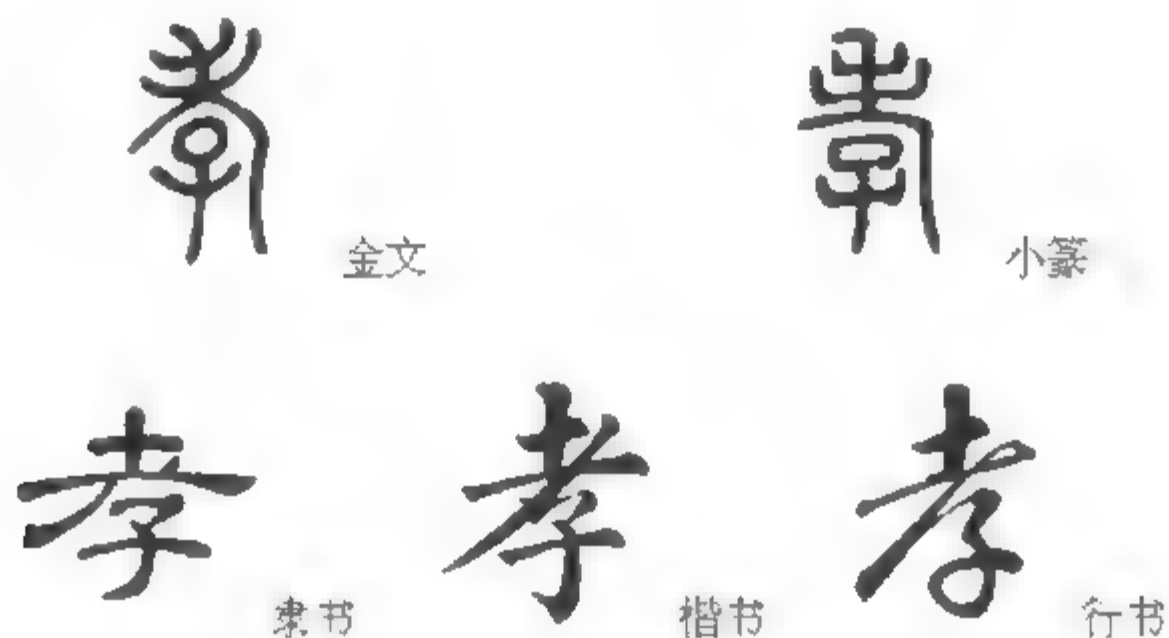 孝 金文 孝 小篆
孝 隶书 孝 楷书 孝 行书